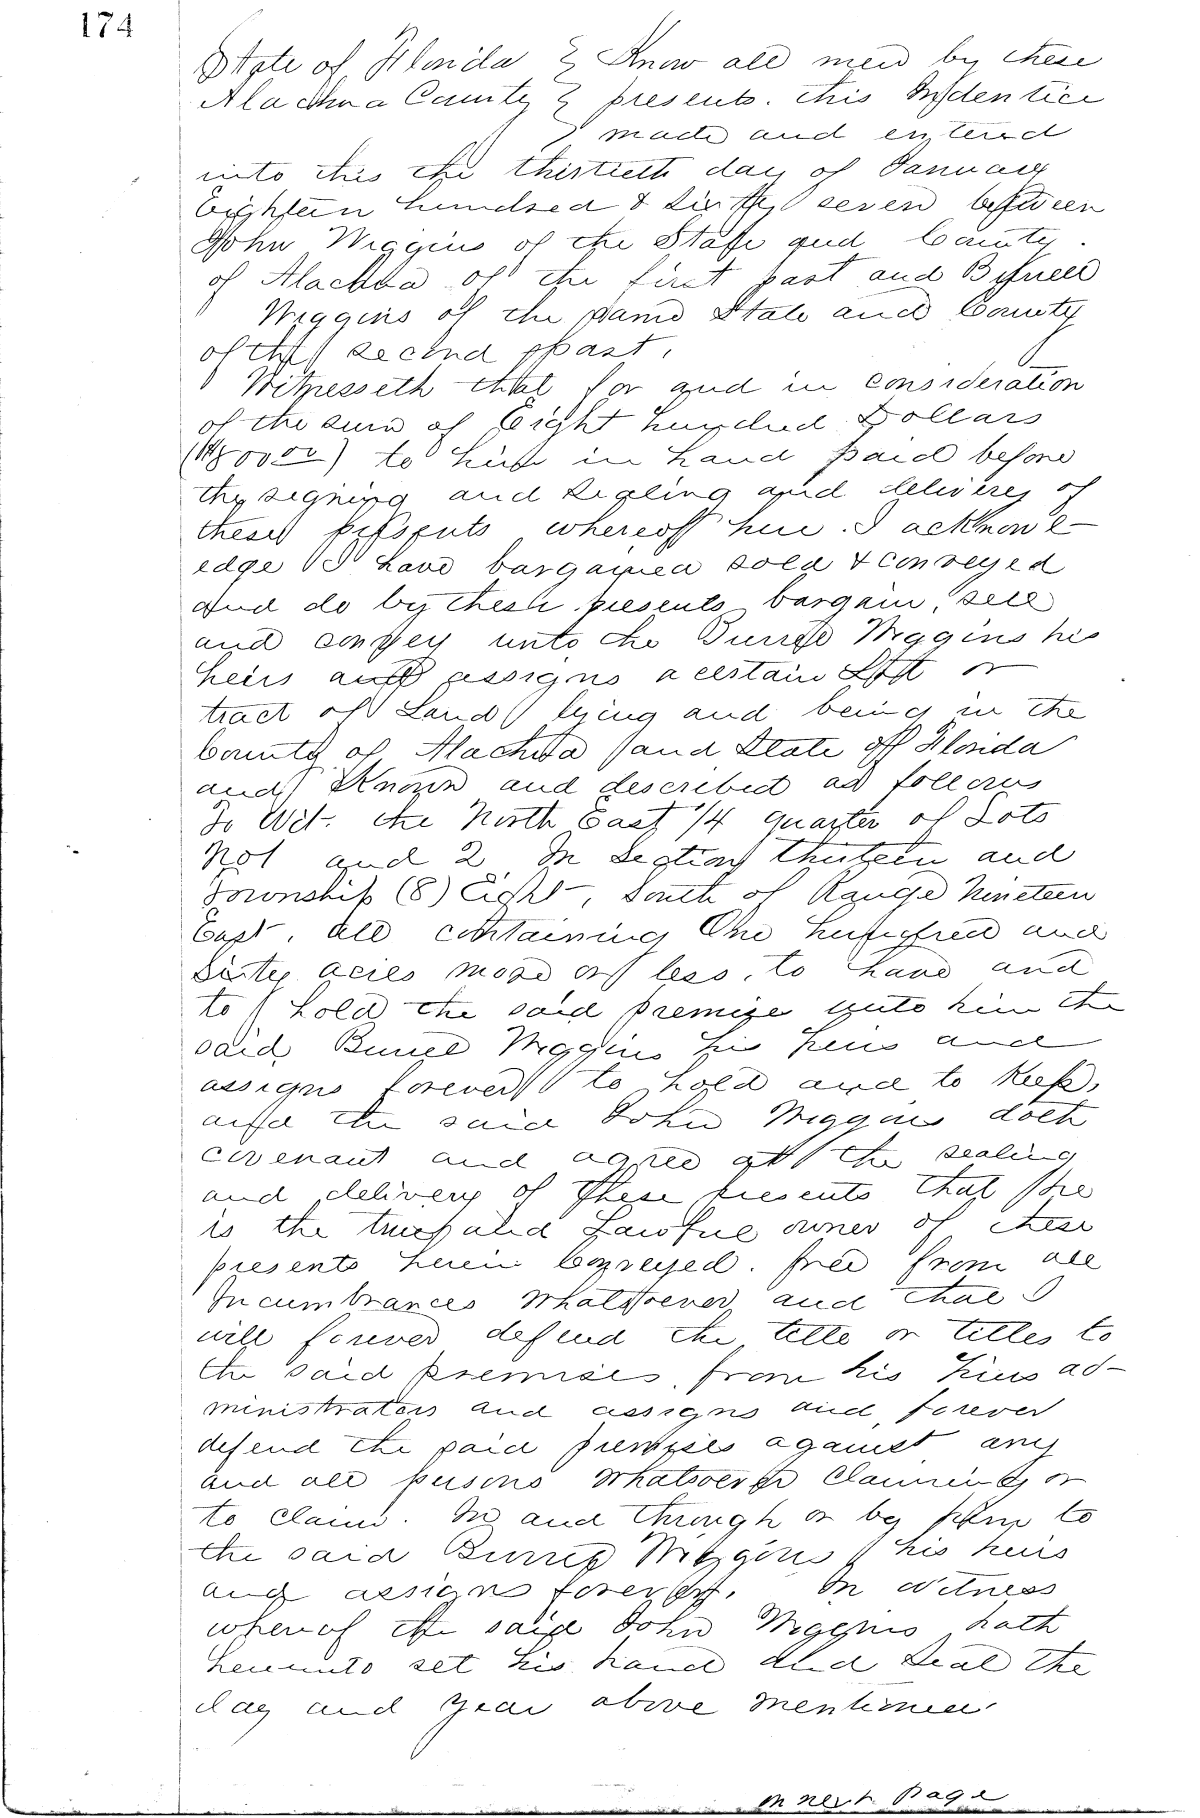 174
State of Florida } Know all men by these
Alachua County } presents. this Indenture
} made and entered
into this the thirtieth day of January
Eighteen hundred & sixty seven between
John Wiggins of the State and County
of Alachua of the first part and Burrell
Wiggins of the same State and County
of the second part.
Witnesseth that for and in consideration
of the sum of Eight hundred Dollars
($800 00) to him in hand paid before
the signing and sealing and delivery of
these presents whereoff here I acknowl-
edge I have bargained sold & conveyed
and do by these presents bargain, sell
and convey unto the Burrell Wiggins his
heirs and assigns a certain Lott or
tract of Land lying and being in the
County of Alachua and State off Florida
and Known and described as follows
To Wit. the North East 1/4 quarter of Lots
No 1 and 2 In Section thirteen and
Township (8) Eight, South of Range Nineteen
East, all containing One hundred and
Sixty acres more or less, to have and
to hold the said premise unto him the
said Burrell Wiggins his heirs and
assigns forever to hold and to Keep,
and the said John Wiggins doth
covenant and agree at the sealing
and delivery of these presents that he
is the true and Lawful owner of these
presents herein Conveyed. free from all
Incumbrances Whatsoever and that I
will forever defend the title or titles to
the said premises, from his heirs ad-
ministrators and assigns and, forever
defend the said premises against any
and all persons whatsoever Claiming or
to claim. In and through or by him to
the said Burrell Wiggins his heirs
and assigns forever. In Witness
whereof the said John Wiggins hath
hereunto set his hand and Seal the
day and year above mentioned.
on next Page